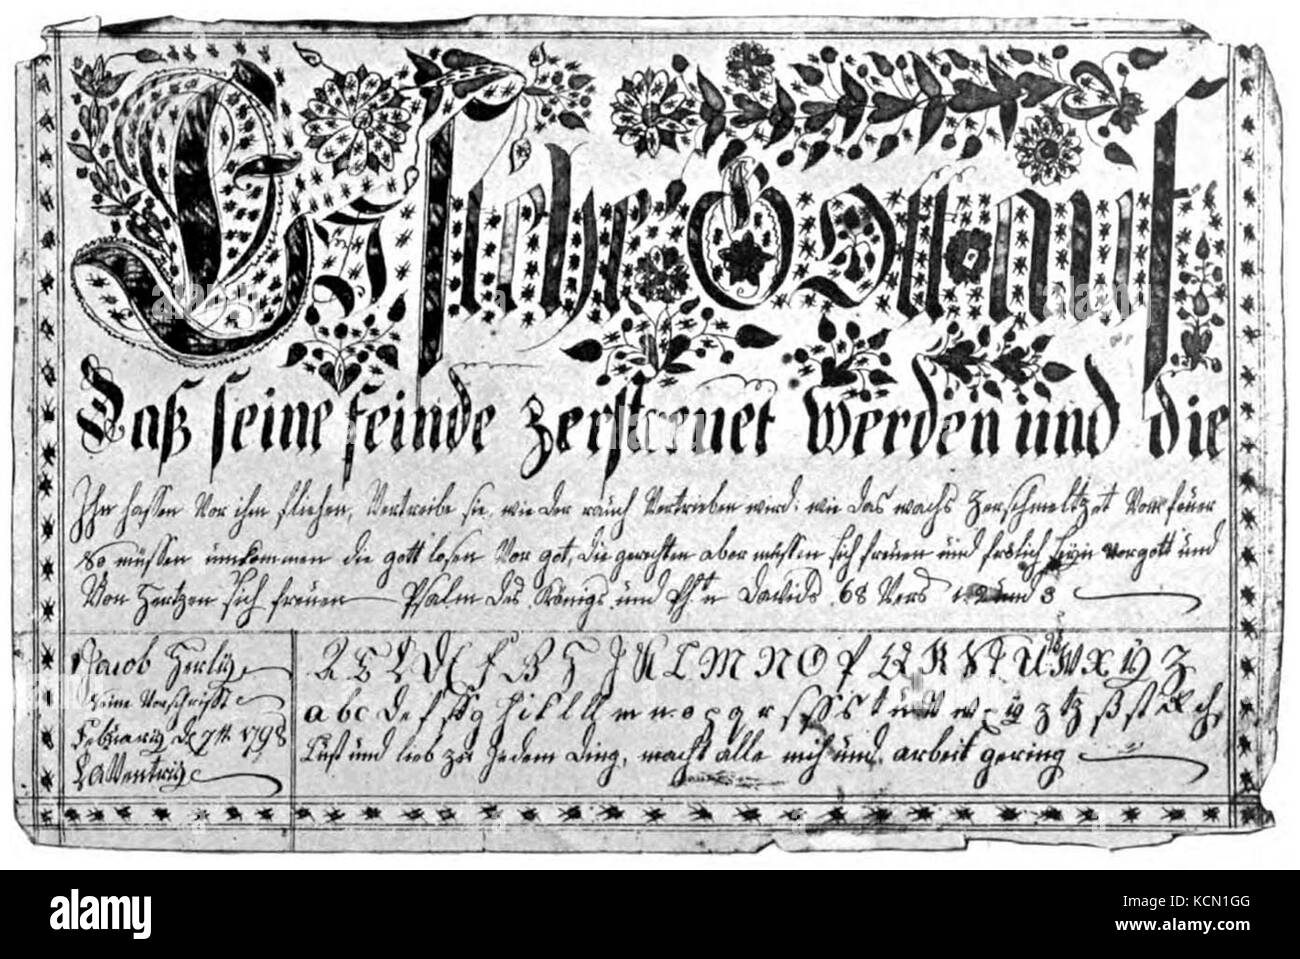 Es stehe Gott auf
Daß seine feinde zerstreuet werden und die
Ihn hassen Vor ihm fliehen, Vertreibe sie, wie der rauch Vertrieben wird, wie das wachs Zerschmeltzet Vom feuer
So müssen umkommen die gottlosen Vor got, die gerechten aber müssen sich freuen und frölich seyn vor gott und
Von Hertzen sich freuen Psalm des Königs und Davids 68 Vers 2 und 3
Jacob
seine Vorschrifft
7th 1798
A B C D E F G H J K L M N O P Q R S T U V W X Y Z
a b c d e f g h i k l m n o p q r s t u v w x y z tz ß st ck ch
Lust und lieb zu Jedem Ding, macht alle müh und arbeit gering
alamy
Image ID: KCN1GG
www.alamy.com